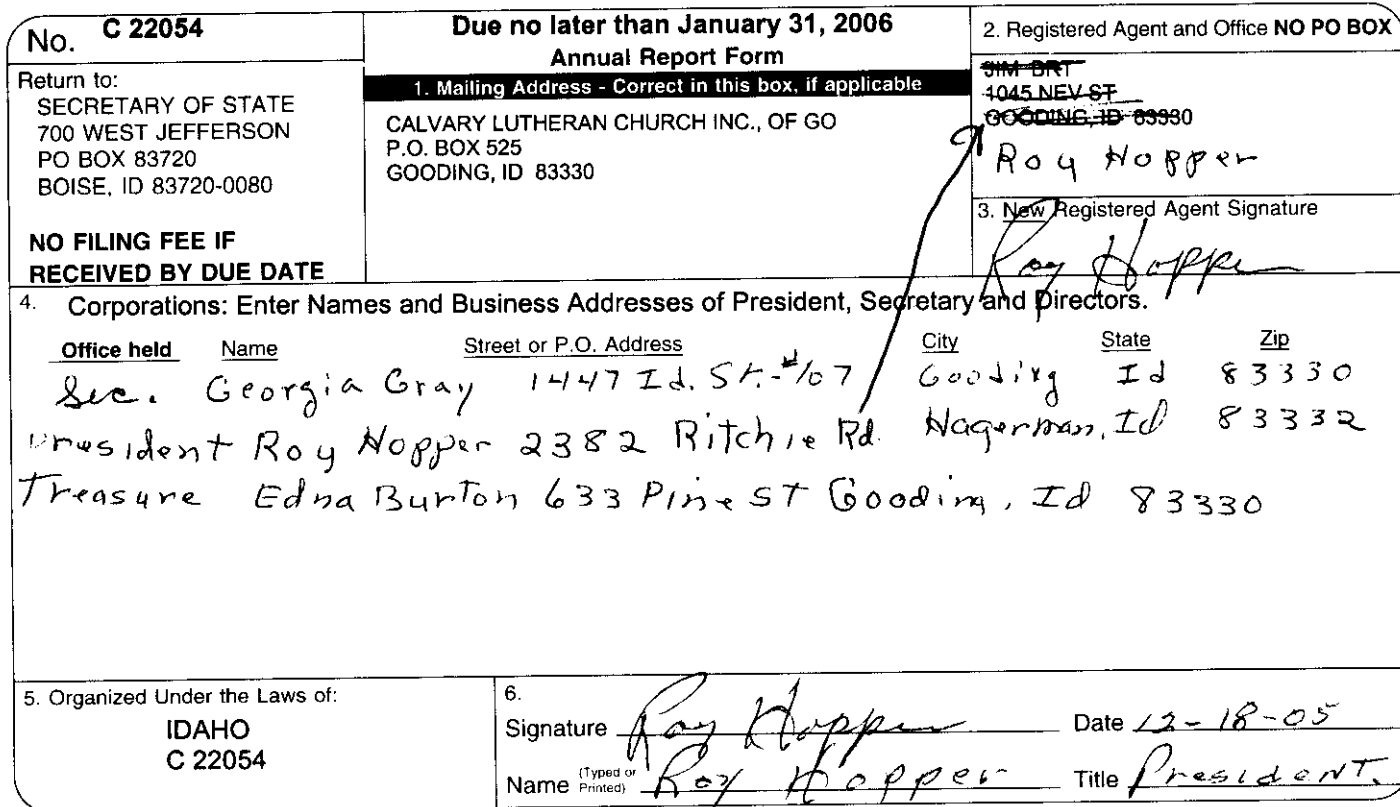 No. C 22054
Return to:
SECRETARY OF STATE
700 WEST JEFFERSON
PO BOX 83720
BOISE, ID 83720-0080
NO FILING FEE IF
RECEIVED BY DUE DATE
Due no later than January 31, 2006
Annual Report Form
1. Mailing Address - Correct in this box, if applicable
CALVARY LUTHERAN CHURCH INC., OF GO
P.O. BOX 525
GOODING, ID 83330
2. Registered Agent and Office NO PO BOX
JIM BRT
1045 NEV ST
GOODING, ID 83330
Roy Hopper
3. New Registered Agent Signature
Roy Hopper
4. Corporations: Enter Names and Business Addresses of President, Secretary and Directors.
Office held Name Street or P.O. Address City State Zip
Sec. Georgia Gray 1447 Id. St. #107 Gooding Id 83330
President Roy Hopper 2382 Ritchie Rd. Hagerman, Id 83332
Treasure Edna Burton 633 Pine ST Gooding, Id 83330
5. Organized Under the Laws of:
IDAHO
C 22054
6.
Signature Roy Hopper Date 12-18-05
Name (Typed or Printed) Roy Hopper Title President.